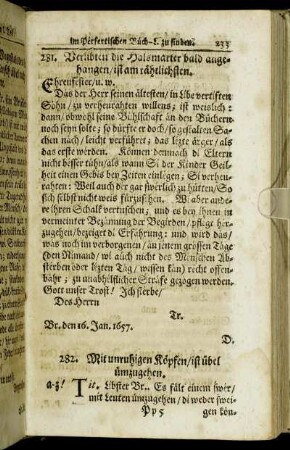 im Perkertischen Büch-L. zu finden. 233
281. Verlibten die Halsmarter bald ange-
hangen / ist am rähtlichsten.
Ehrenfester / u. w.
Das der Herr seinen ältesten / in Lbe vertiften
Söhn / zu verheurahten willens; ist weislich:
dann / obwohl seine Bühlschaft an den Büchern
noch seyn solte; so dürfte er doch / so gestalten Sa-
chen nach / leicht verführet; das lezte ärger / als
das erste werden. Können demnach di Eltern
nicht besser tühn / als wann Si der Kinder Geil-
heit einen Gebis bey Zeiten einlegen; Si verheu-
rahten: Weil auch der gar swirlich zu hütten / So
sich selbst nicht weis fürzusehen. W. aber ande-
re ihren Schalk vertuschen, und es bey ihnen in
vermeinter Bezämung der Begirden / pflege her-
zugehen / bezeiget di Erfahrung: und wird das /
was noch im verborgenen / an jenem grossen Tage
(den Nimand / wi auch nicht des Menschen Ab-
sterben oder lezten Tag / wissen kan) recht offen-
bahr; zu unabhelflicher Sträfe gezogen werden.
Gott unser Trost! Jch sterbe /
Des Herrn
Tr.
Br. den 16. Jan. 1657.
D.
282. Mit unruhigen Köpfen / ist übel
ümzugehen.
Tit. Libster Br.. Es fält einem swir /
mit Leuten ümzugehen / di weder swei-
Pp 5 gen kön-